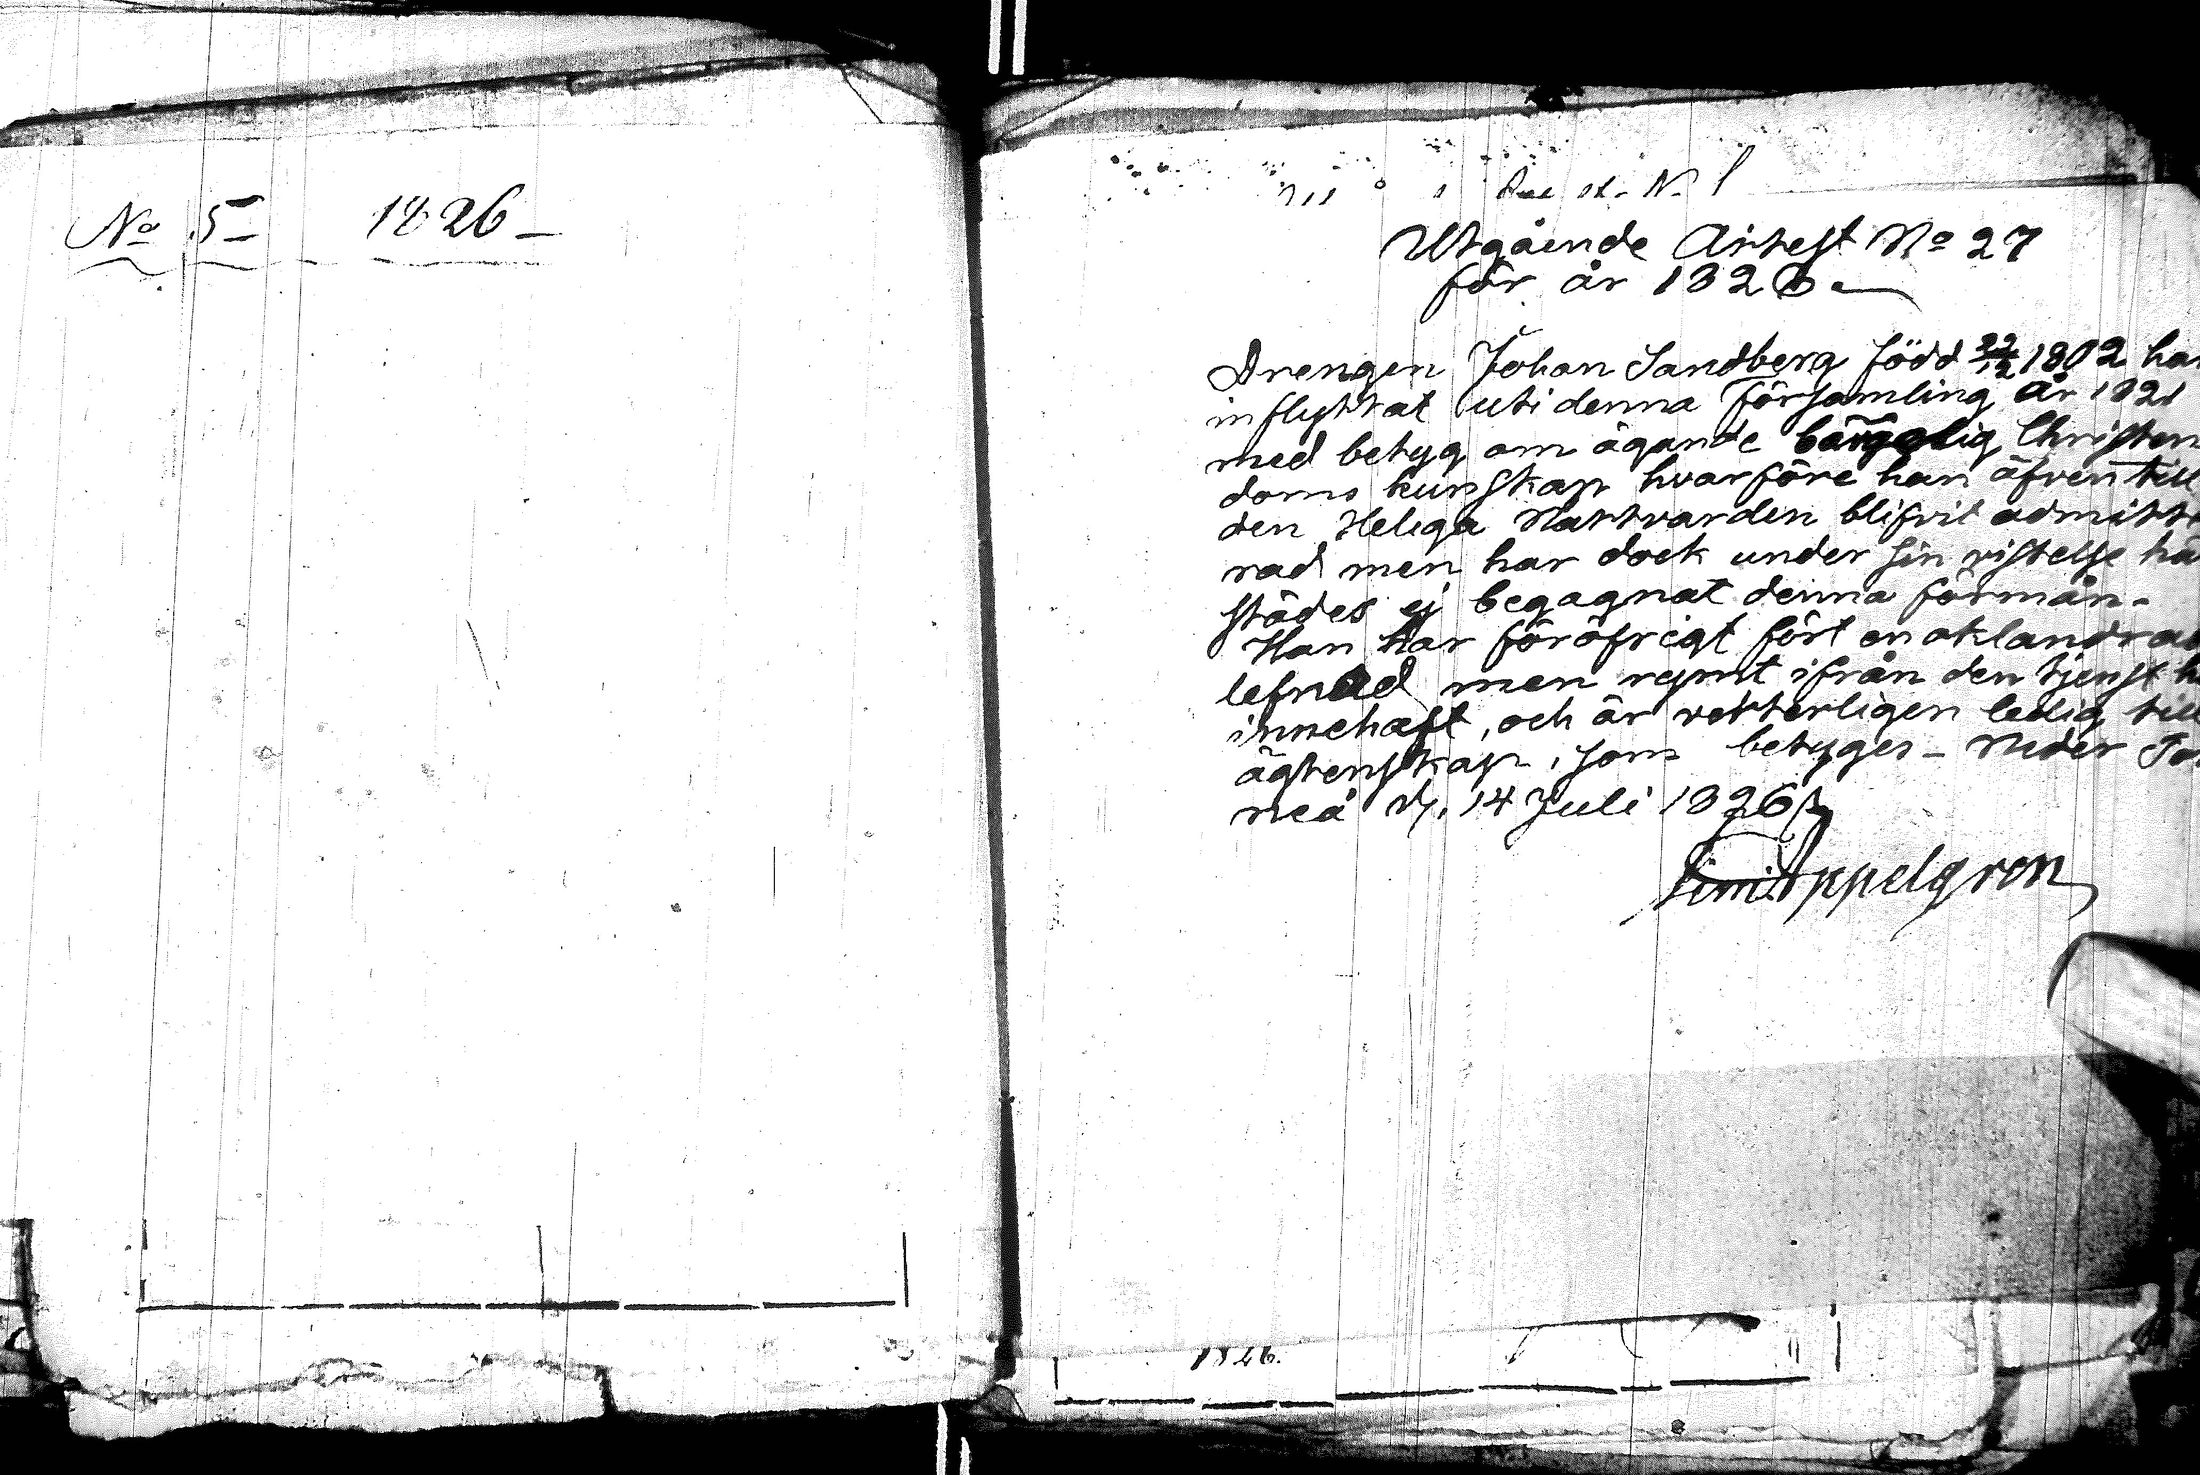 No 5 1826
Utgående Attest No 27
för år 1826
Drengen Johan Sandberg född 22/12 1802 har
inflyttat uti denna Församling år 1821
med betyg om ägande Christen
doms kunskap hvarföre han äfven till
den Heliga Nattvarden blifvit admitte
rad men har dock under sin vistelse hä
städes ej begagnat denna förmån.
Han har föröfrigt fört en oklandra
lefnad men rymt ifrån den tjenst h
innehaft, och är vetterligen ledig till
ägtenskap, som betyges - Neder Tor
neå d. 14 Juli 1826
Appelgren
1826.